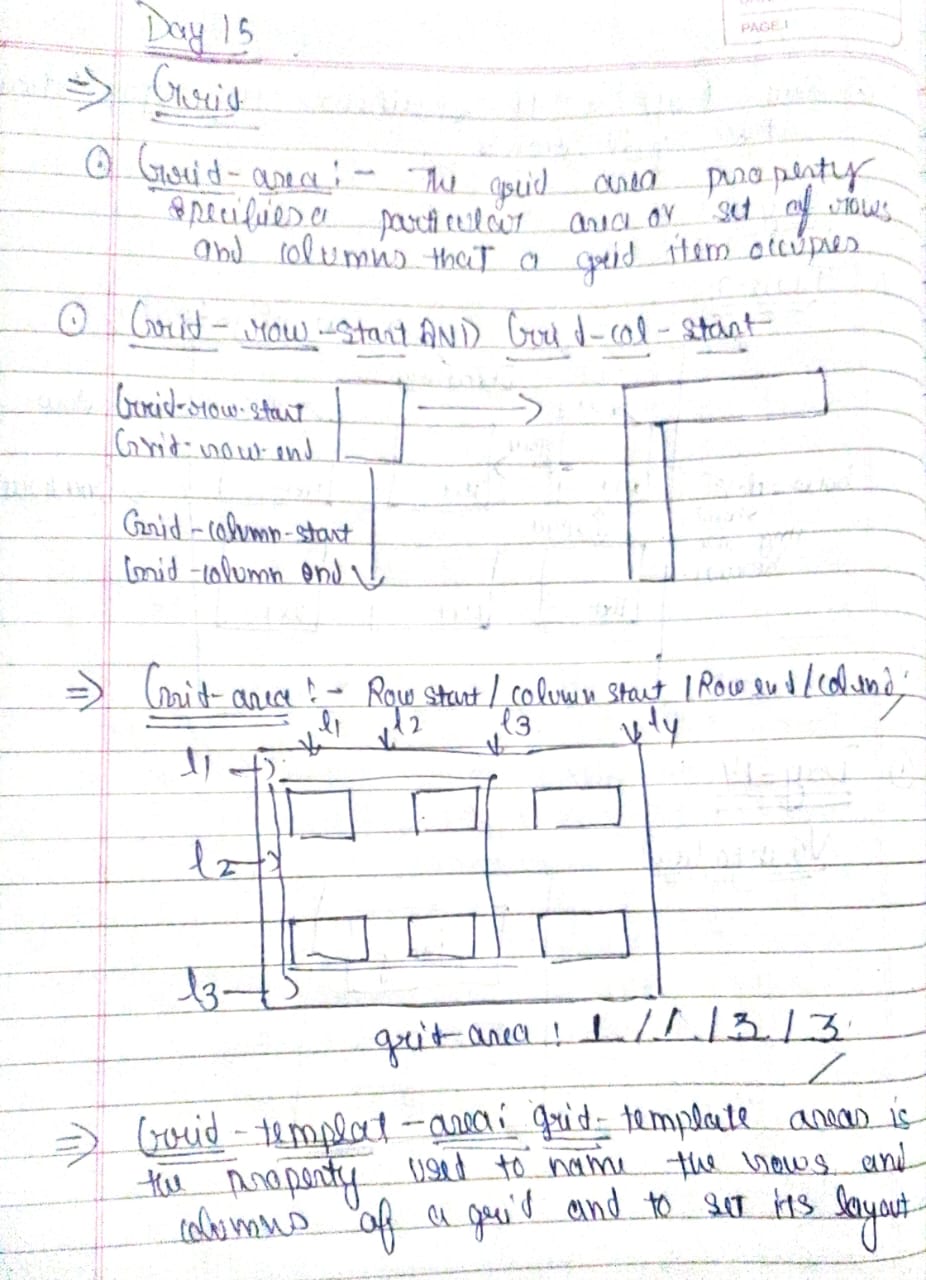 PAGE
Day 15
⇒ Grid
⊙ Grid-area :- The grid area property
specifies a particular area or set of rows
and columns that a grid item occupies
⊙ Grid-row-start AND Grid-col-start
Grid-row-start
Grid-row-end
Grid-column-start
Grid-column end
⇒ Grid-area :- Row start / column start / Row end / col end;
l1 l2 l3 l4
l1
l2
l3
grid-area : 1 / 1 / 3 / 3
⇒ Grid-templat-area: grid-template areas is
the property used to name the rows and
columns of a grid and to set its layout